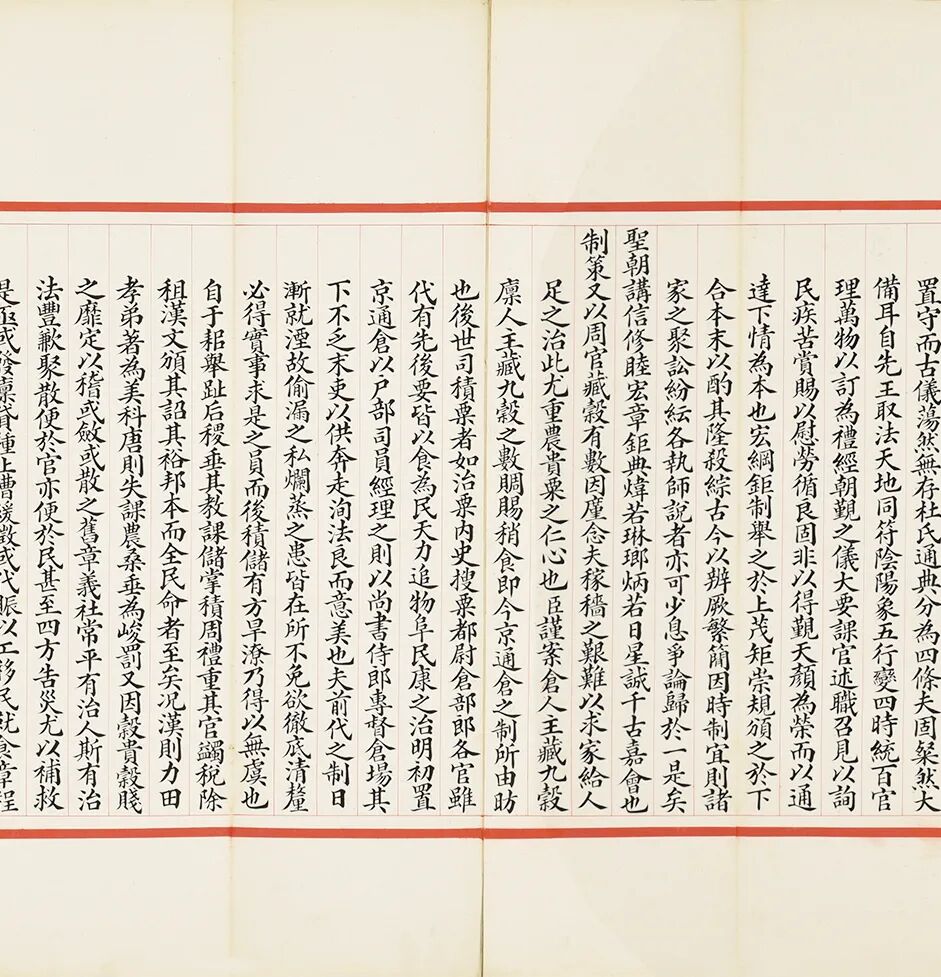 置守而古儀蕩然無存杜氏通典分為四條夫固粲然大
備耳自先王取法天地同符陰陽象五行變四時統百官
理萬物以訂為禮經朝覲之儀大要課官述職召見以詢
民疾苦賞賜以慰勞循良固非以得覲天顏為榮而以通
達下情為本也宏綱鉅制舉之於上茂矩崇規頒之於下
合本末以酌其隆殺綜古今以辨厥繁簡因時制宜則諸
家之聚訟紛紜各執師說者亦可少息爭論歸於一是矣
聖朝講信修睦宏章鉅典煒若琳瑯炳若日星誠千古嘉會也
制策又以周官藏穀有數因廑念夫稼穡之艱難以求家給人
足之治此尤重農貴粟之仁心也臣謹案倉人主藏九穀
廩人主藏九穀之數賙賜稍食即今京通倉之制所由昉
也後世司積粟者如治粟內史搜粟都尉倉部郎各官雖
代有先後要皆以食為民天力追物阜民康之治明初置
京通倉以戶部司員經理之則以尚書侍郎專督倉場其
下不乏末吏以供奔走洵法良而意美也夫前代之制日
漸就湮故偷漏之私爛蒸之患皆在所不免欲徹底清釐
必得實事求是之員而後積儲有方旱潦乃得以無虞也
自于耜舉趾后稷垂其教課儲掌積周禮重其官蠲稅除
租漢文頒其詔其裕邦本而全民命者至矣況漢則力田
孝弟著為美科唐則失課農桑垂為峻罰又因穀貴穀賤
之靡定以稽或斂或散之舊章義社常平有治人斯有治
法豐歉聚散便於官亦便於民甚至四方告災尤以補救
是亟或發廩貸種上曹緩徵或代賑以工移民就食章程